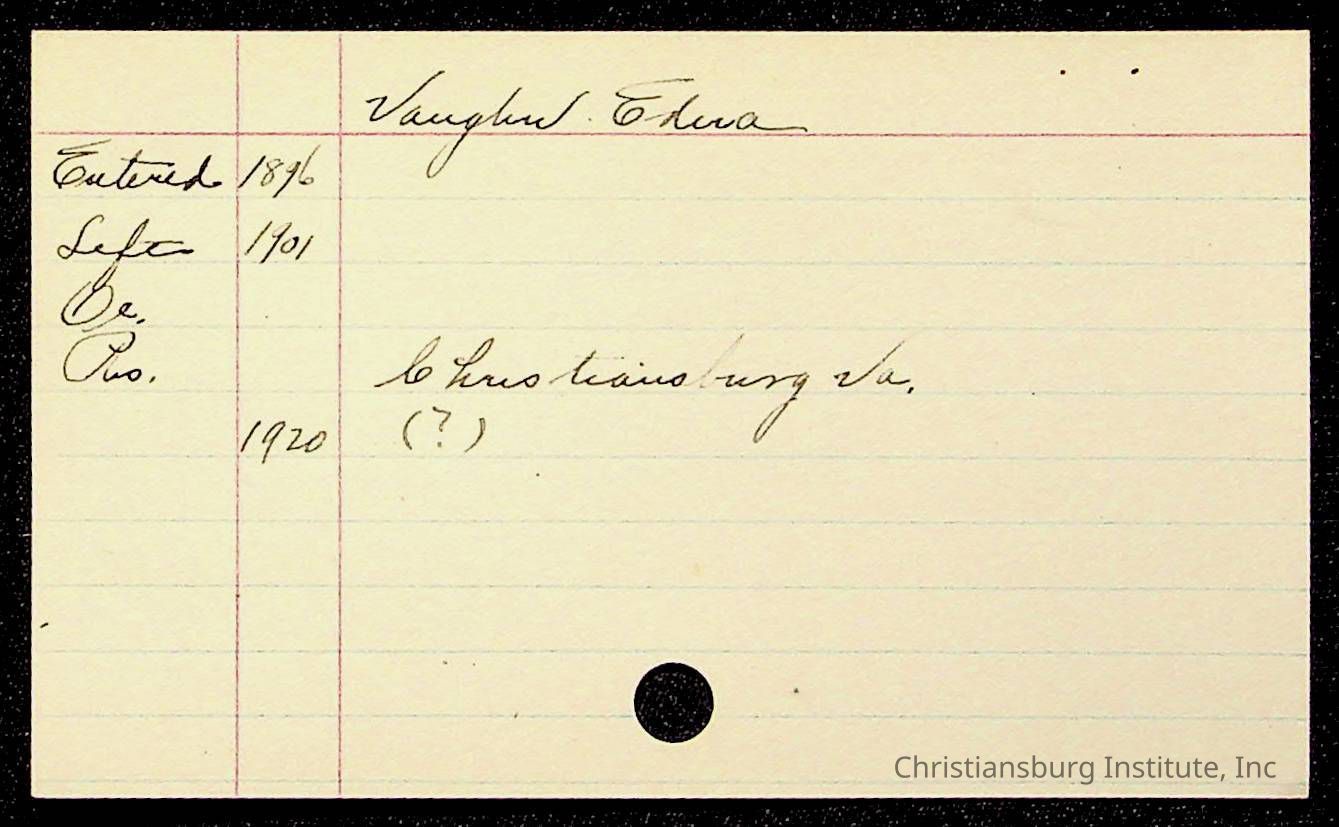 Vaughn Edna
Entered 1896
Left 1901
Oc.
Res. Christiansburg Va.
1920 (?)
Christiansburg Institute, Inc